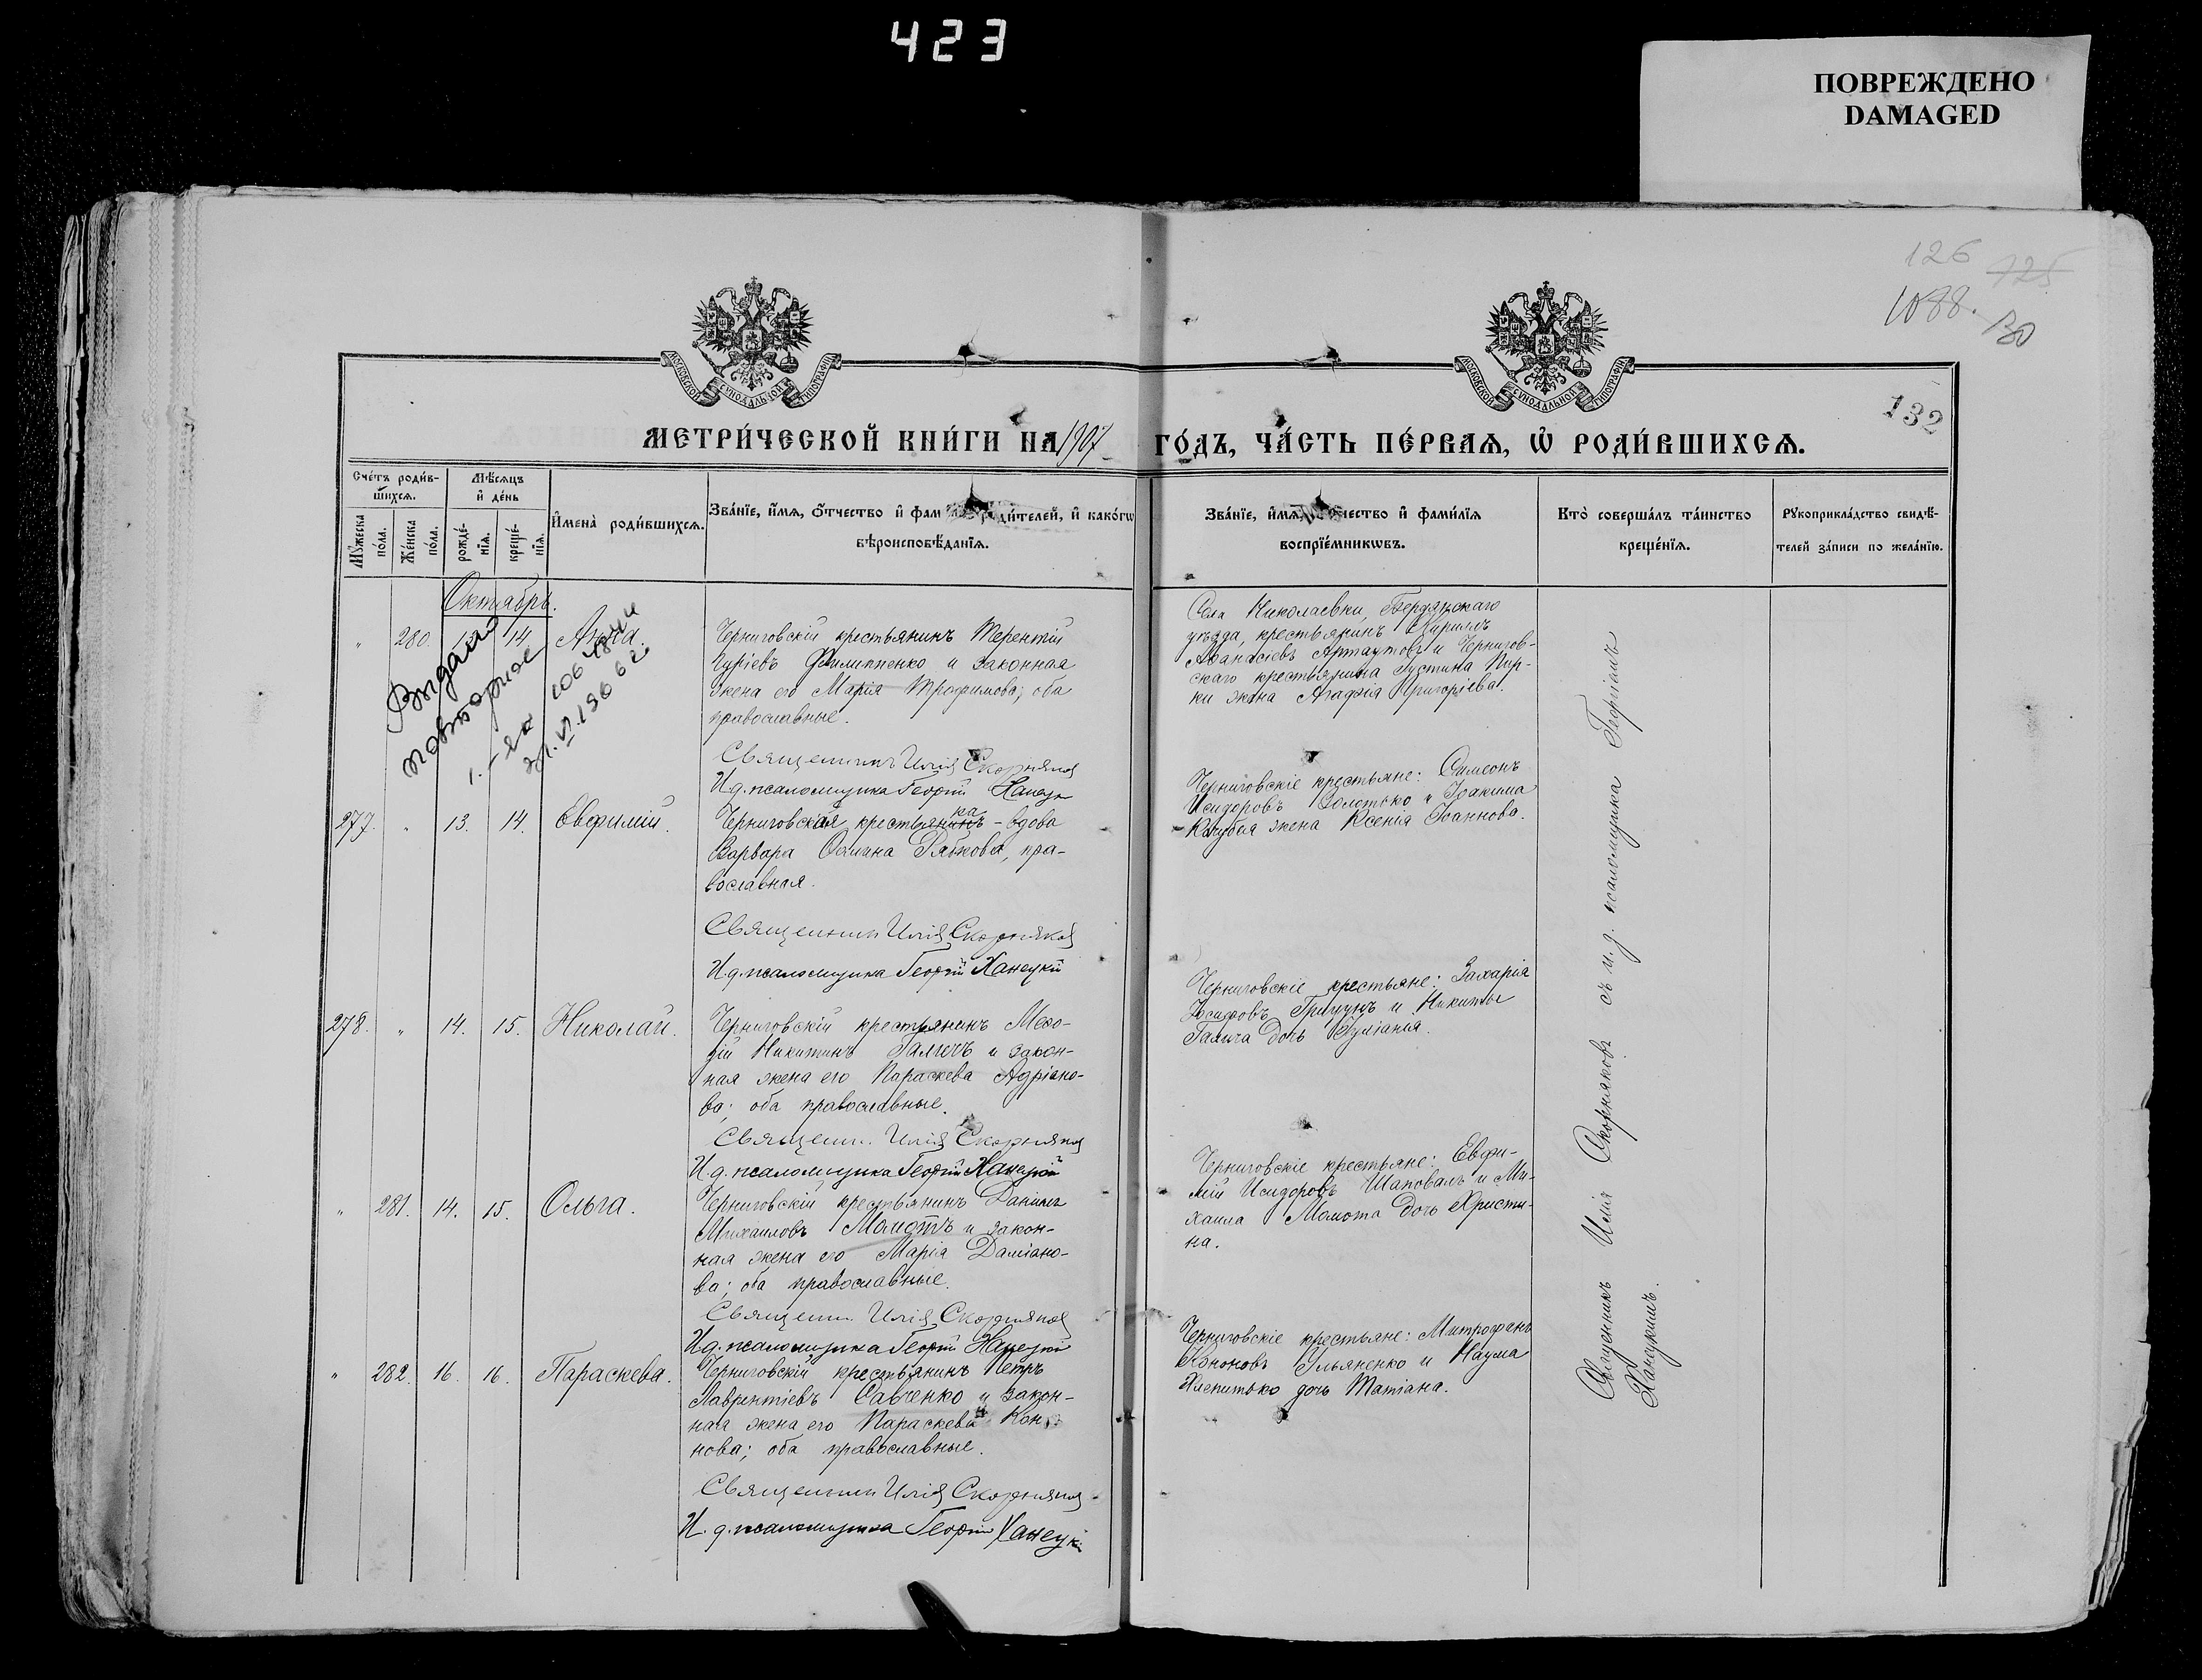 423
ПОВРЕЖДЕНО
DAMAGED
126 125
1088. 130
132
МОСКОВСКОЙ СѴНОДАЛЬНОЙ ТИПОГРАФІИ
МОСКОВСКОЙ СѴНОДАЛЬНОЙ ТИПОГРАФІИ
МЕТРИ́ЧЕСКОЙ КНИ́ГИ НА 1907 ГО́ДЪ, ЧА́СТЬ ПЕ́РВАѦ, Ѡ҆ РОДИ́ВШИХСѦ.
Сче́тъ роди́в-
шихсѧ.
Мꙋ́жеска
по́ла.
Же́нска
по́ла.
Мѣ́сѧцъ
и҆ де́нь
рожде́-
нїѧ.
креще́-
нїѧ.
И҆мена̀ роди́вшихсѧ.
Зва́нїе, и҆́мѧ, ѻ҆́тчество и҆ фам роди́телей, и҆ како́гѡ
вѣроисповѣ́данїѧ.
Зва́нїе, и҆́мѧ, чество и҆ фами́лїѧ
воспрїе́мникѡвъ.
Кто̀ соверша́лъ та́инство
креще́нїѧ.
Рꙋкоприкла́дство свидѣ́-
телей за́писи по жела́нїю.
Октябрь.
" 280. 14 Анна.
Выдано
повторное
21.VI.1966 г.
Черниговскій крестьянинъ Терентій
Гуріевъ Филиппенко и законная
жена его Марія Трофимова; оба
православные.
Священникъ Илія Скорняков
И.д. псаломщика Георгій Ханецкій
Села Николаевки, Бердянскаго
уѣзда, крестьянинъ Кириллъ
Аѳанасіевъ Артаутовъ и Чернигов-
скаго крестьянина Іустина Пир-
ки жена Агафія Григоріева.
277. " 13. 14. Евфимій.
Черниговская крестьянинъ ка - вдова
Варвара Ѳомина Рябкова, пра-
вославная.
Священникъ Илія Скорняков
И.д. псаломщика Георгій Ханецкій
Черниговскіе крестьяне: Симеонъ
Исидоровъ Золотько и Іоакима
жена Ксенія Іоаннова.
278. " 14. 15. Николай.
Черниговскій крестьянинъ Меѳо-
дій Никитинъ Галичъ и закон-
ная жена его Параскева Адріано-
ва; оба православные.
Священн. Илія Скорняков
И.д. псаломщика Георгій Ханецкій
Черниговскіе крестьяне: Захарія
Іосифовъ Грицунъ и Никиты
Галича дочь Іуліанія.
" 281. 14. 15. Ольга.
Черниговскій крестьянинъ Даніилъ
Михаиловъ Момотъ и закон-
ная жена его Марія Даміано-
ва; оба православные.
Священн. Илія Скорняков
И.д. псаломщика Георгій Ханецкій
Черниговскіе крестьяне: Евфи-
мій Исидоровъ Шаповалъ и Ми-
хаила Момота дочь Христи-
на.
" 282. 16. 16. Параскева.
Черниговскій крестьянинъ Петръ
Лаврентіевъ Савченко и закон-
ная жена его Параскева Коно-
нова; оба православные.
Священникъ Илія Скорняков
И.д. псаломщика Георгій Ханецкій
Черниговскіе крестьяне: Митрофанъ
Кононовъ Ульяненко и Наума
Хлепитько дочь Татіана.
Священникъ Илія Скорняковъ съ и.д. псаломщика Георгіемъ
Ханецкимъ.